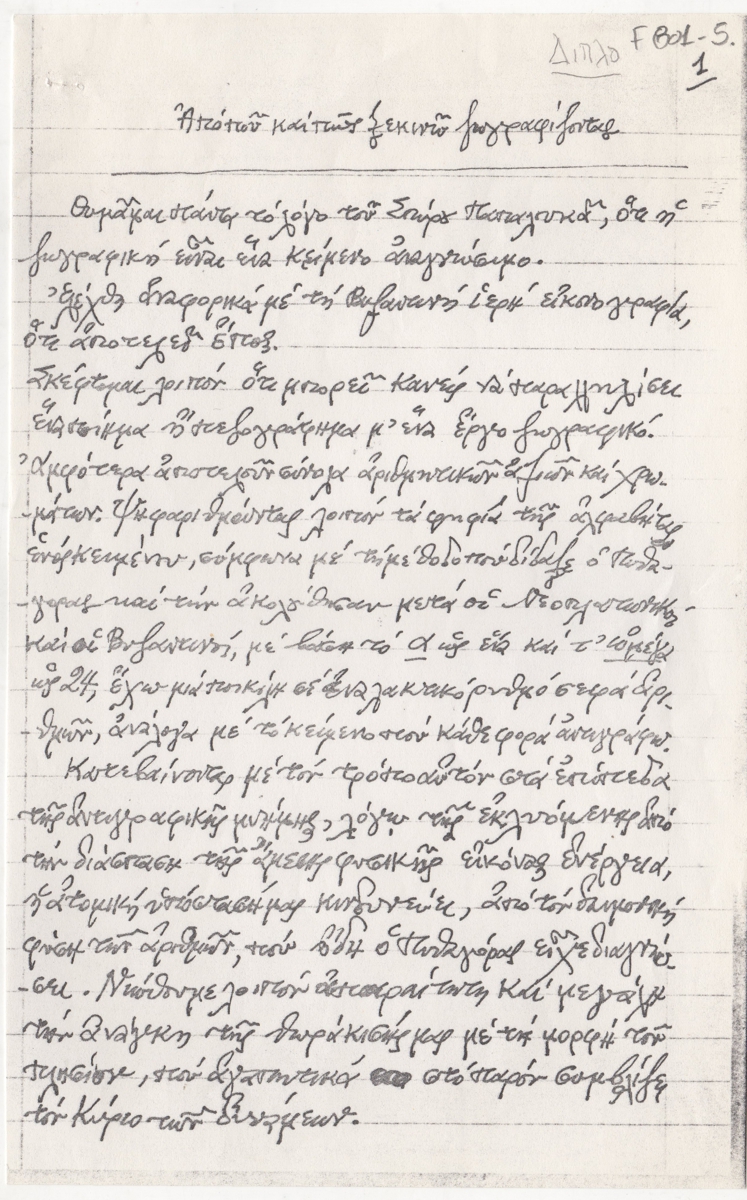 Διπλο F801-S.
1
Ἀπό ποῦ καί πῶς ξεκινῶ ζωγραφίζοντας
Θυμᾶμαι πάντα τό λόγο τοῦ Σπύρου Παπαλουκᾶ, ὅτι ἡ
ζωγραφική εἶναι ἕνα κείμενο ἀναγνώσιμο.
Ἐλέχθη ἀναφορικά μέ τή Βυζαντινή ἱερή εἰκονογραφία,
ὅτι ἀποτελεῖ ἔπος.
Σκέφτομαι λοιπόν ὅτι μπορεῖ κανείς νά παραλληλίσει
ἕνα ποίημα ἤ πεζογράφημα μ' ἕνα ἔργο ζωγραφικό.
Ἀμφότερα ἀποτελοῦν σύνολα ἀριθμητικῶν ἀξιῶν καί χρω-
-μάτων. Ψηφαριθμώντας λοιπόν τά ψηφία τῆς ἀλφαβήτας
ἑνός κειμένου, σύμφωνα μέ τή μέθοδο πού δίδαξε ὁ Πυθα-
-γόρας καί τήν ἀκολούθησαν μετά οἱ Νεοπλατωνικοί
καί οἱ Βυζαντινοί, μέ βάση τό α ὡς ἕνα καί τ' ὠμέγα
ὡς 24, ἔχω μιά ποικίλη σέ ἐναλακτικό ρυθμό σειρά ἀρι-
-θμῶν, ἀνάλογα μέ τό κείμενο πού κάθε φορά ἀντιγράφω.
Κατεβαίνοντας μέ τόν τρόπο αὐτόν στά ἐπίπεδα
τῆς ἀντιγραφικῆς μνήμης, λόγω τῆς ἐκλυόμενης ἀπό
τήν διάσπαση τῆς ἄμεσης φυσικῆς εἰκόνας ἐνέργεια,
ἡ ἀτομική ὑπόστασή μας κινδυνεύει, ἀπό τόν δαιμονική
φύση τῶν ἀριθμῶν, πού ἤδη ὁ Πυθαγόρας εἶχε διαγνώ-
-σει. Νιώθουμε λοιπόν ἀπαραίτητη καί μεγάλη
τήν ἀνάγκη τῆς θωράκισής μας μέ τή μορφή τοῦ
πλησίον, πού ἀγαπητικά στό παρόν συμβολίζει
τόν Κύριο τῶν δυνάμεων.